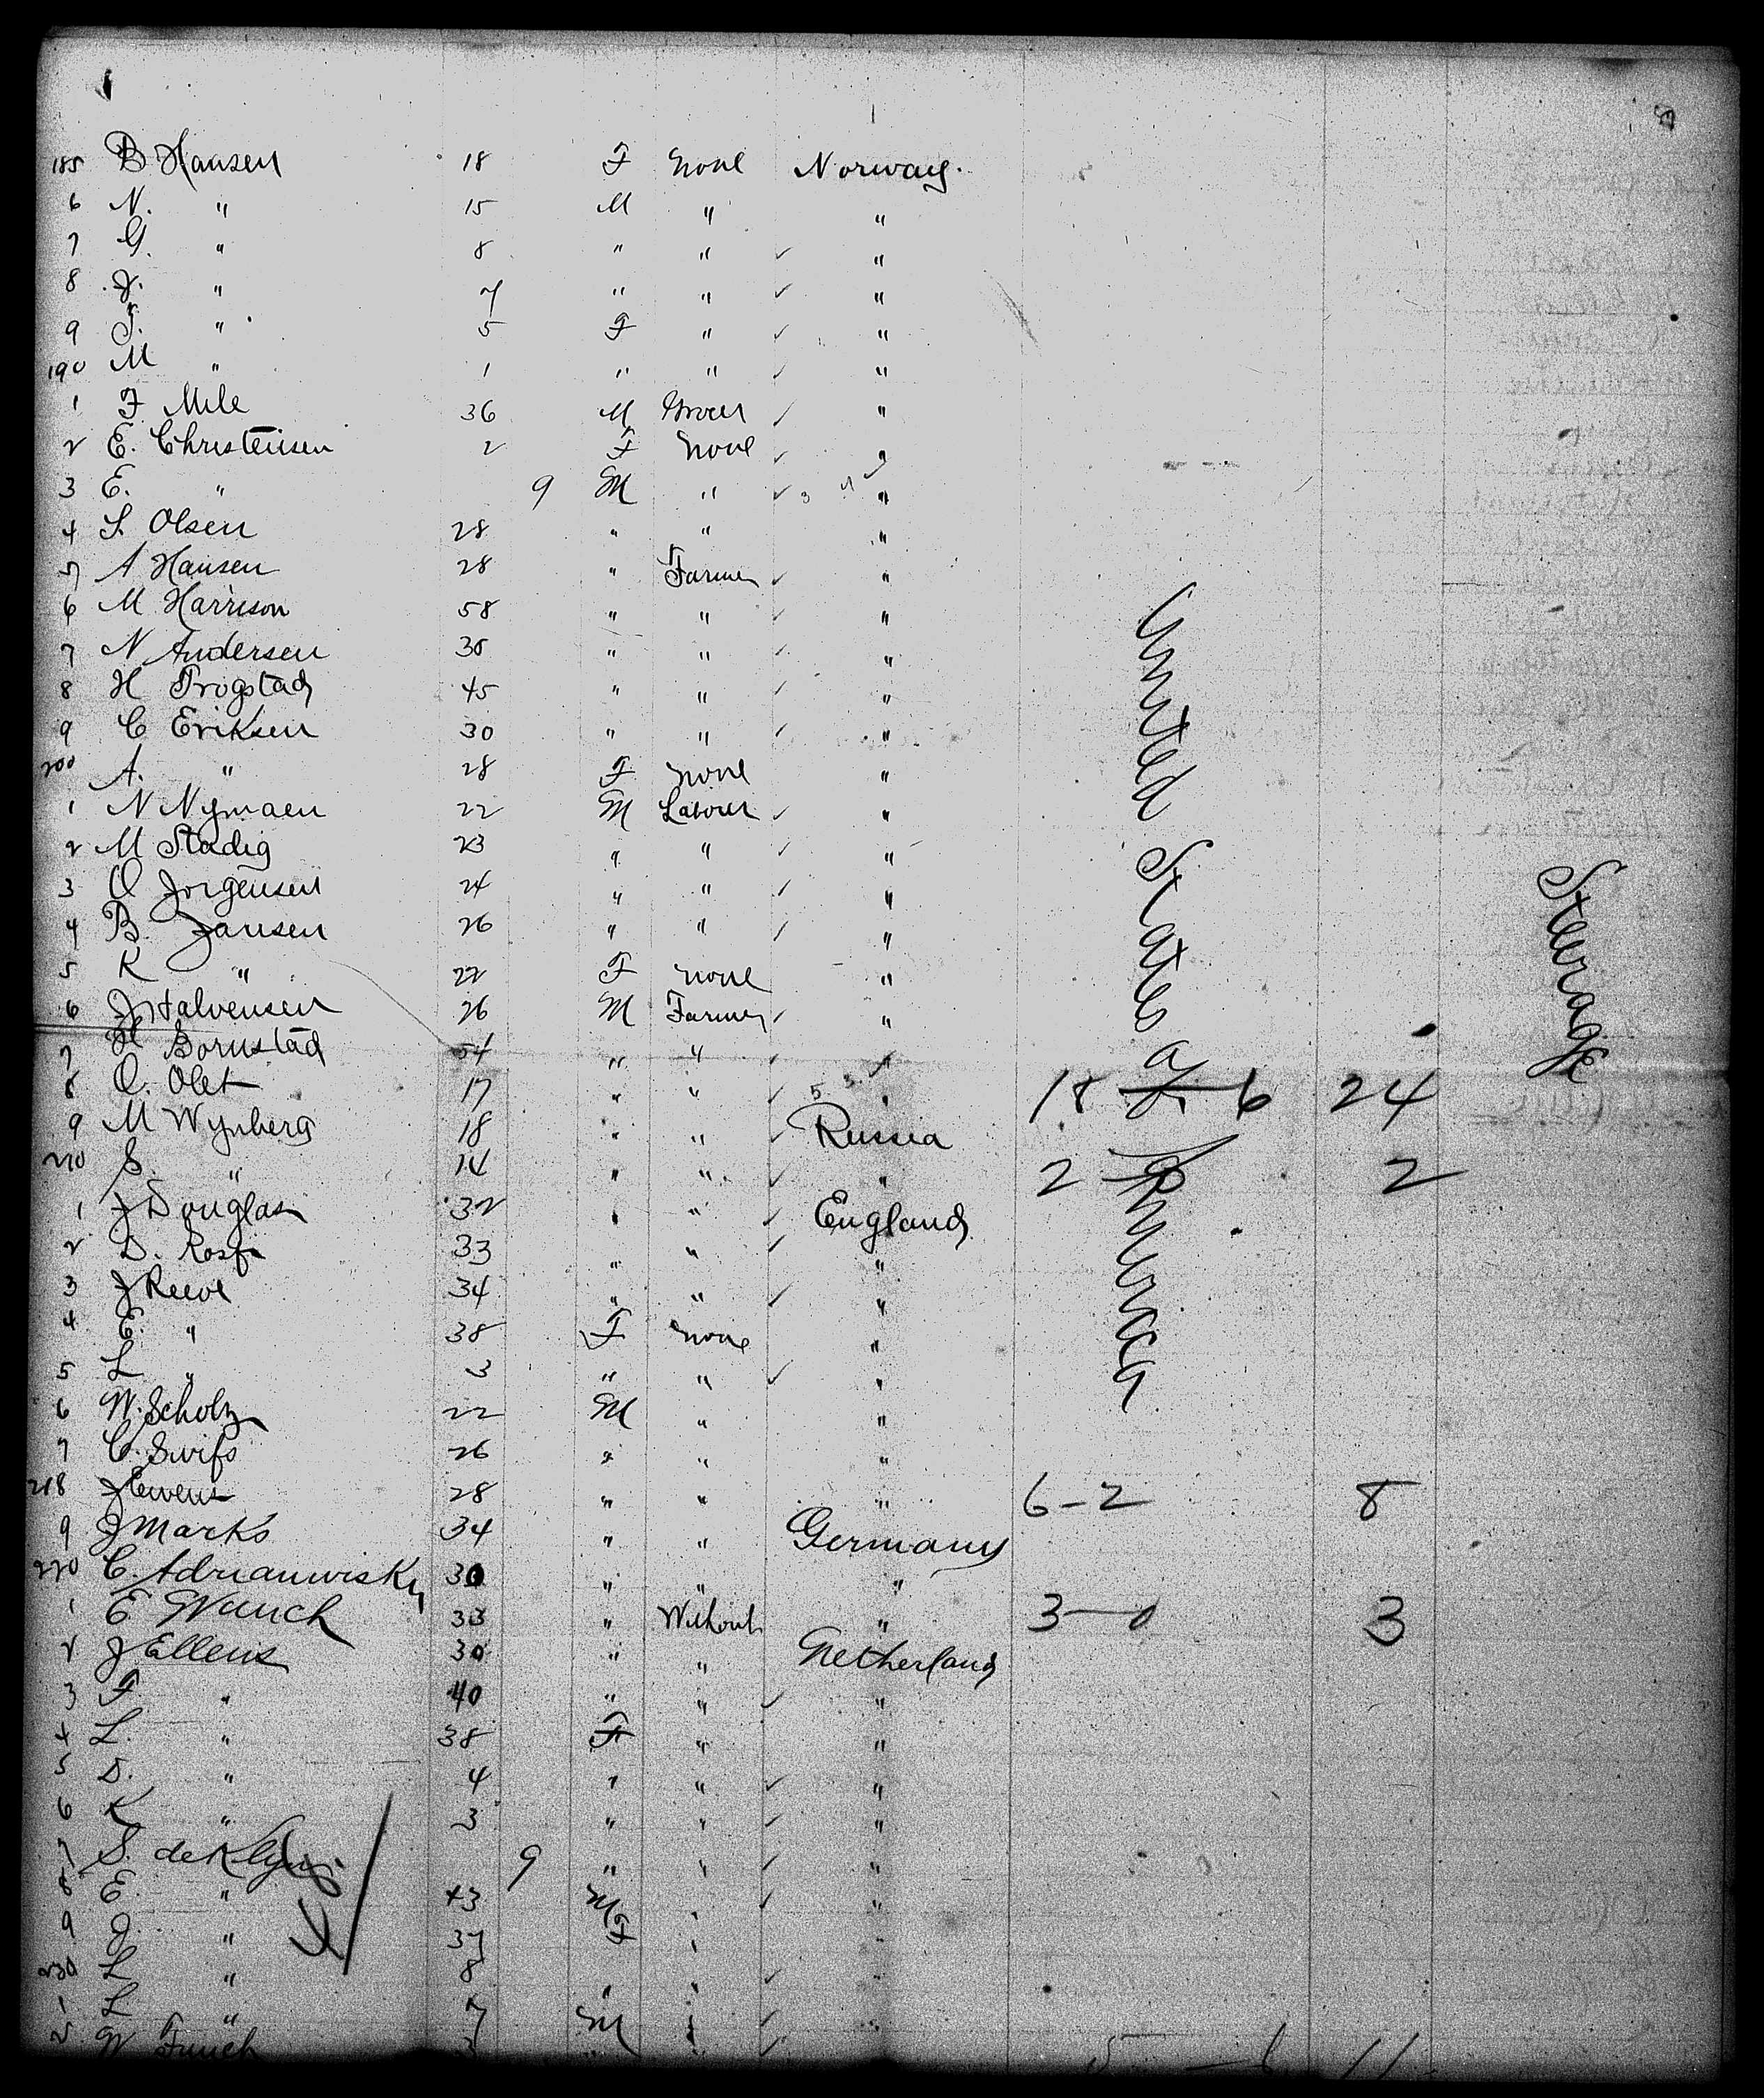 185 B Hansen 18 F none Norway.
6 N. " 15 M " "
7 G. " 8 " " ✓ "
8 J. " 7 " " ✓ "
9 T. " 5 F " ✓ "
190 M " 1 " " ✓ "
1 F Mile 36 M Grocer ✓ "
2 E. Christensen 2 F none ✓ "
3 E. " 9 M " ✓ "
4 S. Olsen 28 " " "
5 A Hansen 28 " Farmer ✓ "
6 M Harrison 58 " " ✓ "
7 N Andersen 30 " " "
8 H Trogstad 45 " " ✓ "
9 C Eriksen 30 " " ✓ "
200 A. " 28 F none "
1 N Nymaen 22 M Laborer ✓ "
2 M Stadig 23 " " ✓ "
3 O Jorgensen 24 " " ✓ "
4 B. Jansen 26 " " ✓ "
5 K " 22 F none "
6 J Halvensen 26 M Farmer ✓ "
7 H Bornstad 54 " " ✓ "
8 O. Olet 17 " " ✓ " 18 - 6 24
9 M Wynberg 18 " " ✓ Russia
210 S. " 14 " " ✓ " 2 - 0 2
1 J Douglas 32 " " ✓ England
2 D. 33 " " ✓ "
3 J Reeve 34 " " ✓ "
4 E. " 38 F none "
5 L " 3 " " ✓ "
6 W. Scholz 22 M " "
7 C. Swifs 26 " " "
218 28 " " " 6 - 2 8
9 J Marks 34 " " Germany
220 C. Adrianwisky 30 " " "
1 E Wunch 33 " Without " 3 - 0 3
2 J Ellens 30 " " Netherland
3 F. " 40 " " ✓ "
4 L. " 38 F " "
5 D. " 4 " " ✓ "
6 K " 3 " " ✓ "
7 S. de Klyn 9 " " ✓ "
8 E. " 43 M " ✓ "
9 J. " 37 F " "
230 L " 8 " " ✓ "
1 L " 7 M " ✓
2 W Funch 11
United States of America
Steerage